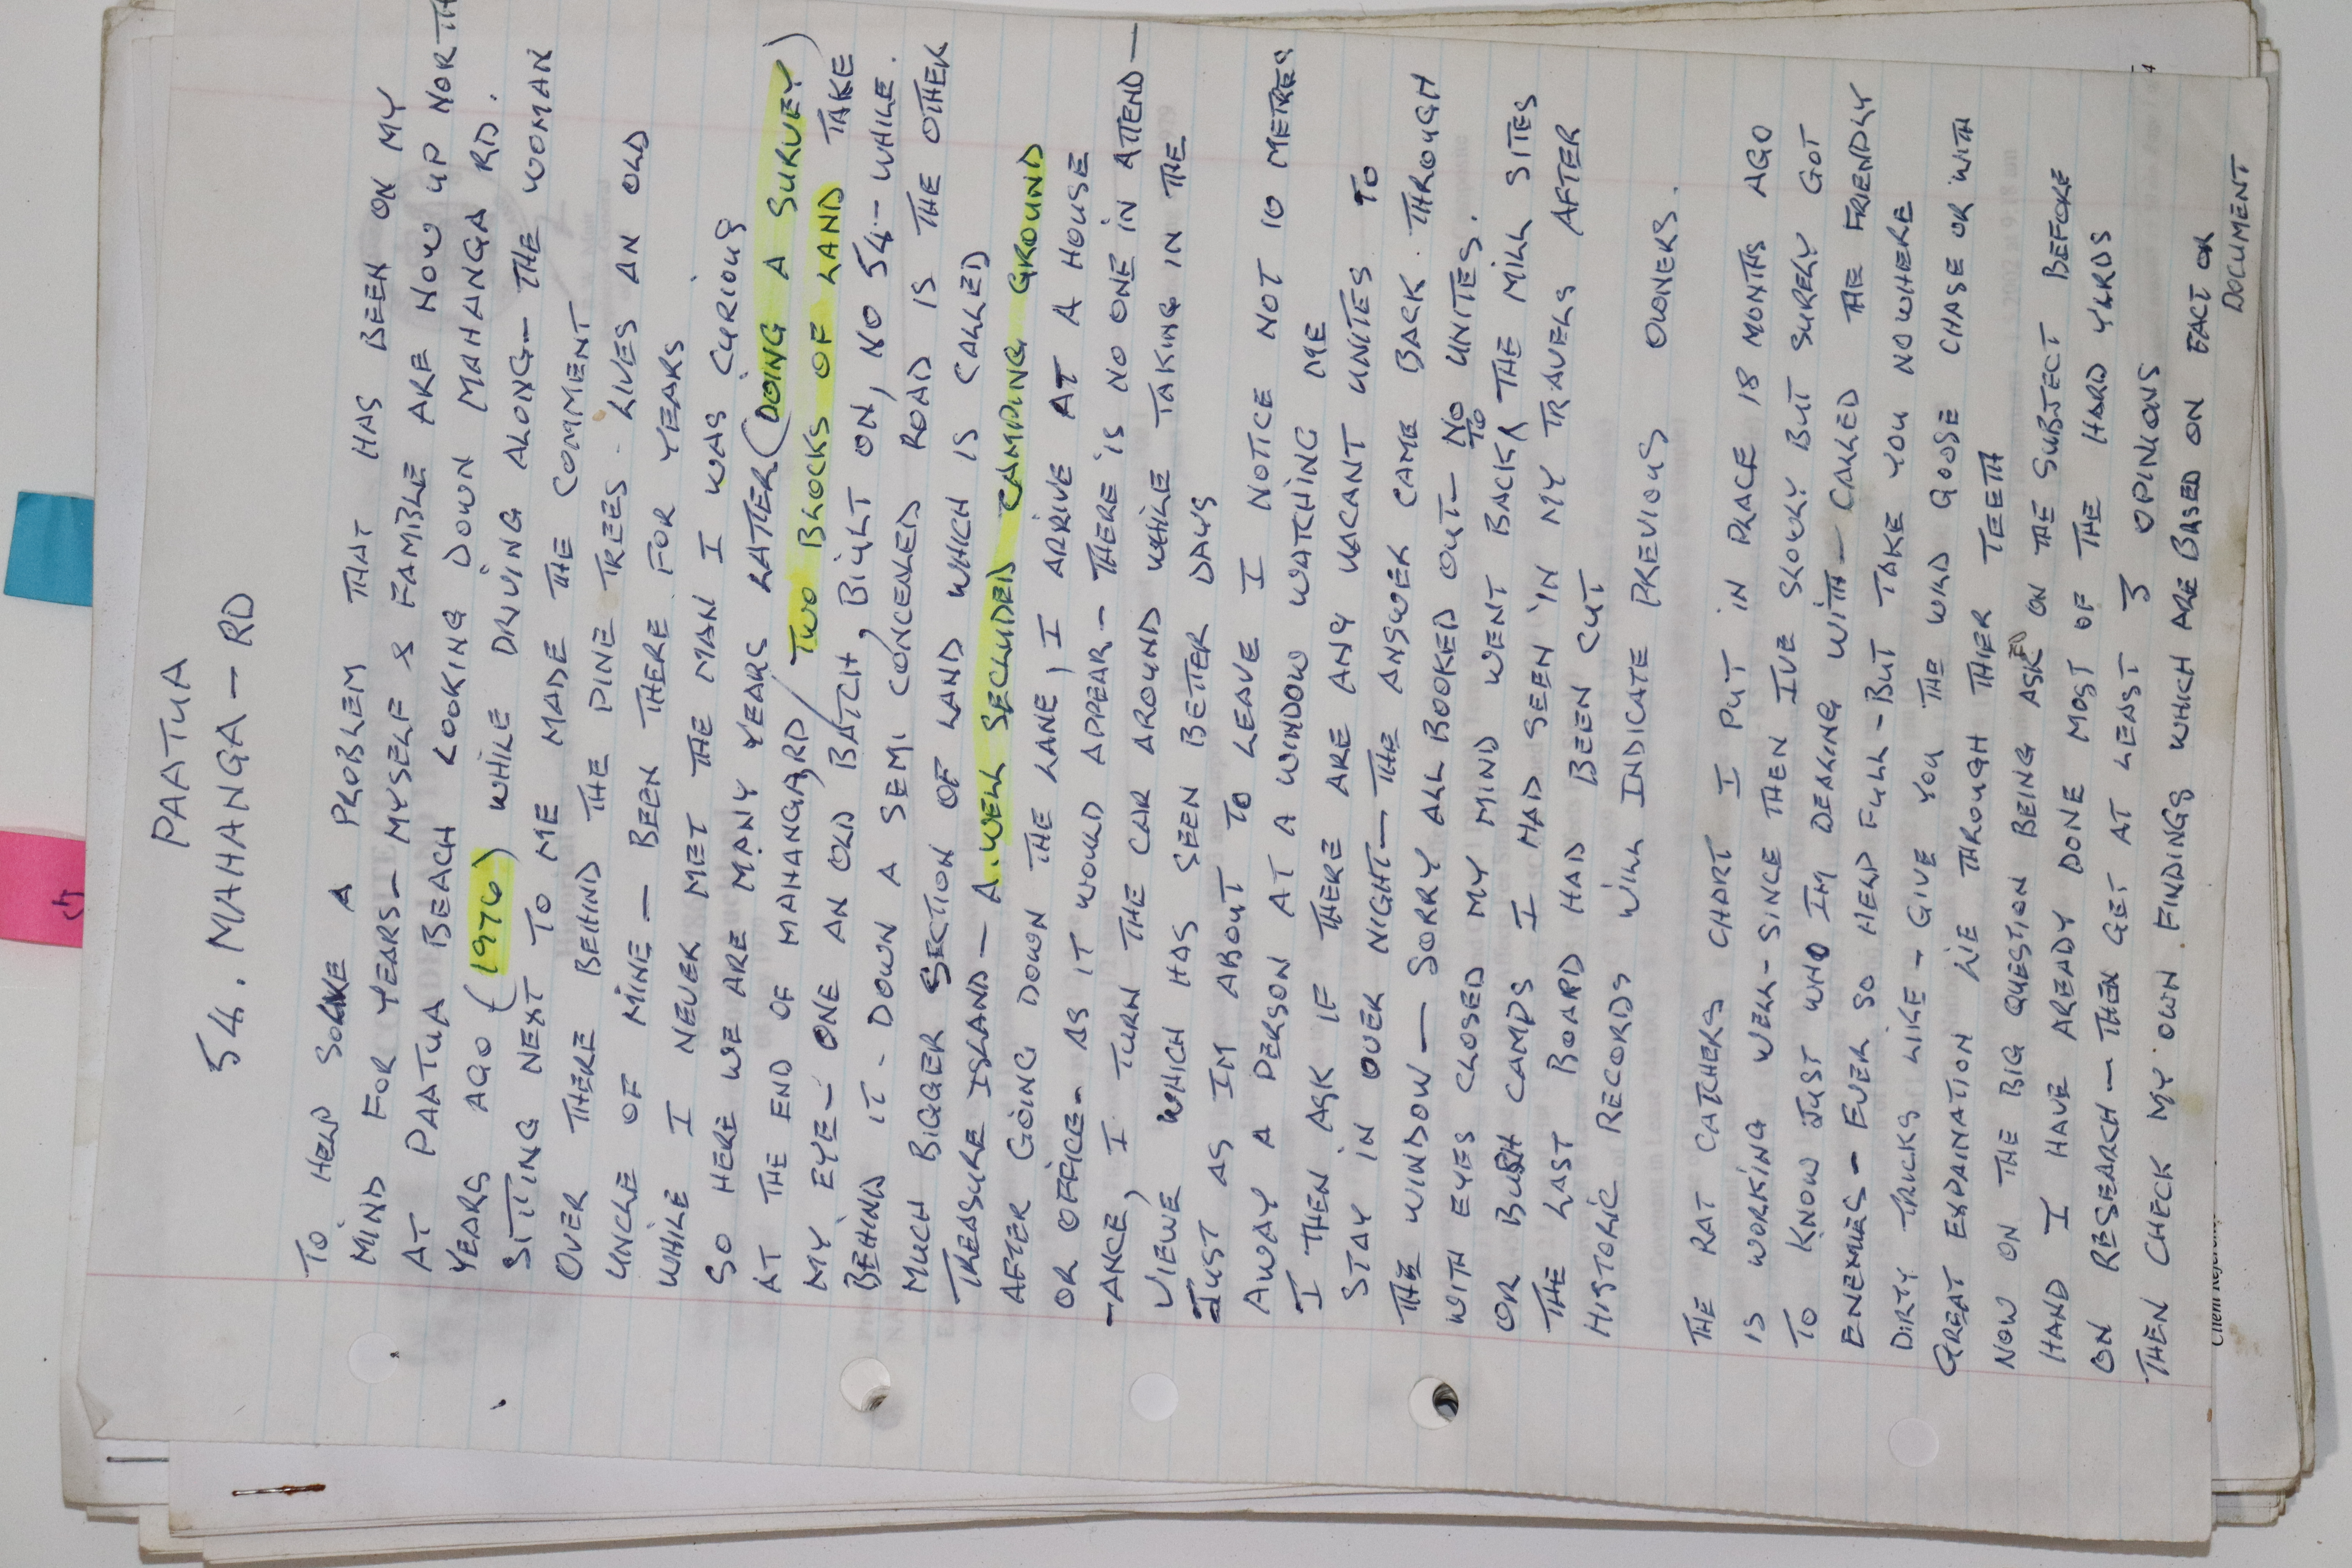 PAATUA
54. MAHANGA - RD
TO HELP SOLVE A PROBLEM THAT HAS BEEN ON MY
MIND FOR YEARS - MYSELF & FAMIBLE ARE NOW UP NORTH
AT PAATUA BEACH LOOKING DOWN MAHANGA RD.
YEARS AGO (1976) WHILE DRIVING ALONG - THE WOMAN
SITTING NEXT TO ME MADE THE COMMENT
OVER THERE BEHIND THE PINE TREES. LIVES AN OLD
UNCLE OF MINE - BEEN THERE FOR YEARS
WHILE I NEVER MET THE MAN I WAS CURIOUS
SO HERE WE ARE MANY YEARS LATER (DOING A SURVEY)
AT THE END OF MAHANGA RD / TWO BLOCKS OF LAND TAKE
MY EYE - ONE AN OLD BATCH, BIULT ON, NO 54 - WHILE.
BEHIND IT - DOWN A SEMI CONCEALED ROAD IS THE OTHER
MUCH BIGGER SECTION OF LAND WHICH IS CALLED
TREASURE ISLAND - A. WELL SECLUDED CAMPING GROUND
AFTER GOING DOWN THE LANE, I ARIVE AT A HOUSE
OR OFFICE - AS IT WOULD APPEAR - THERE IS NO ONE IN ATTEND -
- ANCE, I TURN THE CAR AROUND WHILE TAKING IN THE
VIEWE WHICH HAS SEEN BETTER DAYS
JUST AS IM ABOUT TO LEAVE I NOTICE NOT 10 METRES
AWAY A PERSON AT A WINDOW WATCHING ME
I THEN ASK IF THERE ARE ANY VACANT UNITES TO
STAY IN OVER NIGHT - THE ANSWER CAME BACK THROUGH
THE WINDOW - SORRY ALL BOOKED OUT - NO UNITES.
WITH EYES CLOSED MY MIND WENT BACK TO THE MILL SITES
OR BUSH CAMPS I HAD SEEN IN MY TRAVELS AFTER
THE LAST BOARD HAD BEEN CUT
HISTORIC RECORDS WILL INDICATE PREVIOUS OWNERS.
THE RAT CATCHERS CHART I PUT IN PLACE 18 MONTHS AGO
IS WORKING WELL - SINCE THEN IVE SLOWLY BUT SURELY GOT
TO KNOW JUST WHO IM DEALING WITH - CALLED THE FRIENDLY
ENEMIES - EVER SO HELP FULL - BUT TAKE YOU NOWHERE
DIRTY TRICKS LIKE - GIVE YOU THE WILD GOOSE CHASE OR WITH
GREAT EXPLINATION LIE THROUGH THIER TEETH
NOW ON THE BIG QUESTION BEING ASKED ON THE SUBJECT BEFORE
HAND I HAVE AREADY DONE MOST OF THE HARD YARDS
ON RESEARCH - THEN GET AT LEAST 3 OPINIONS
THEN CHECK MY OWN FINDINGS WHICH ARE BASED ON FACT OR
DOCUMENT